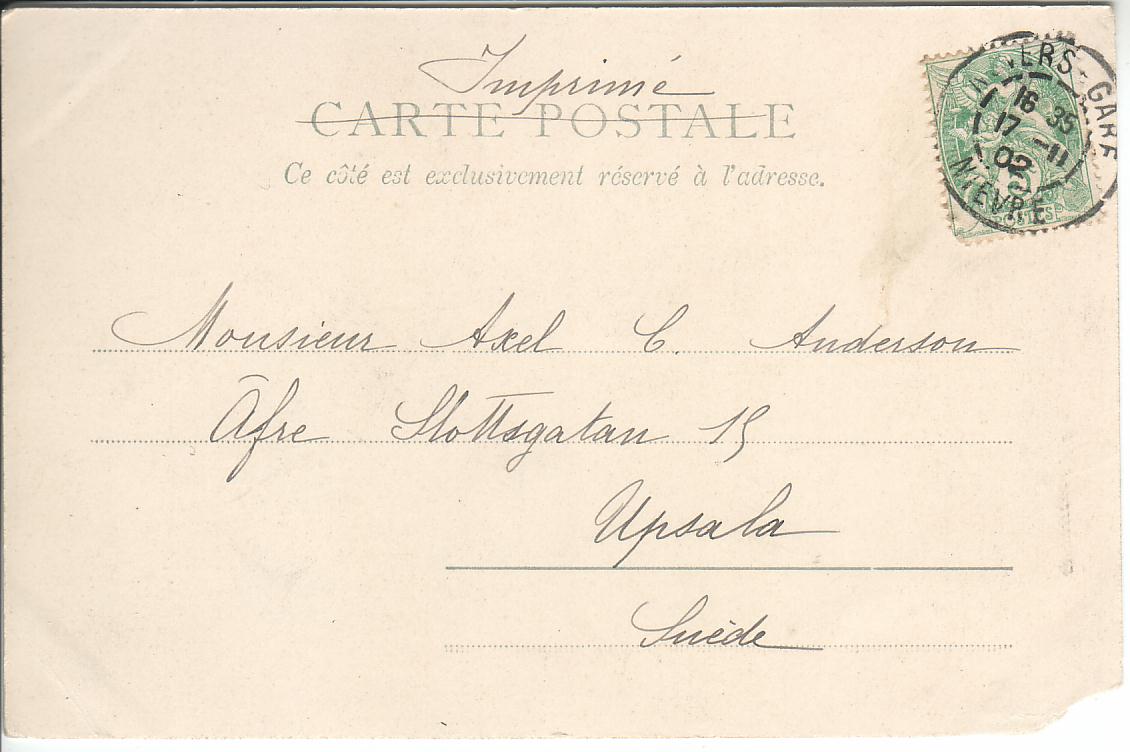 Imprimé
CARTE POSTALE
Ce côté est exclusivement réservé à l'adresse.
NEVERS-GARE
16 35
17 -11
02
NIEVRE
5
POSTES
Monsieur Axel C. Anderson
Åfre Slottsgatan 15
Upsala
Suède